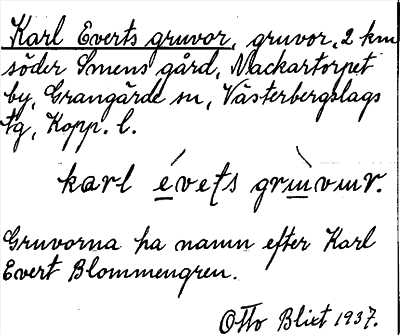 Karl Everts gruvor, gruvor, 2 km
söder Smens gård, Mackartorpet
by, Grangärde sn, Västerbergslags
tg, Kopp. l.
karl évets grùvωr.
Gruvorna ha namn efter Karl
Evert Blommengren.
Otto Blixt 1937.